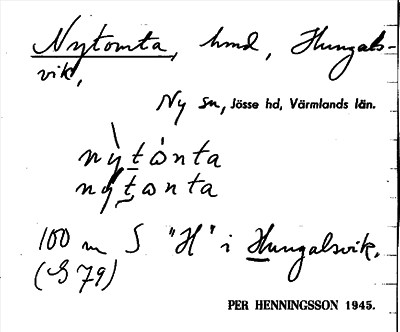 Nytomta, hmd, Hungals-
vik,
Ny sn, Jösse hd, Värmlands län.
nỳtònta
nytɷnta
100 m S "H" i Hungalsvik.
(G 79)
PER HENNINGSSON 1945.